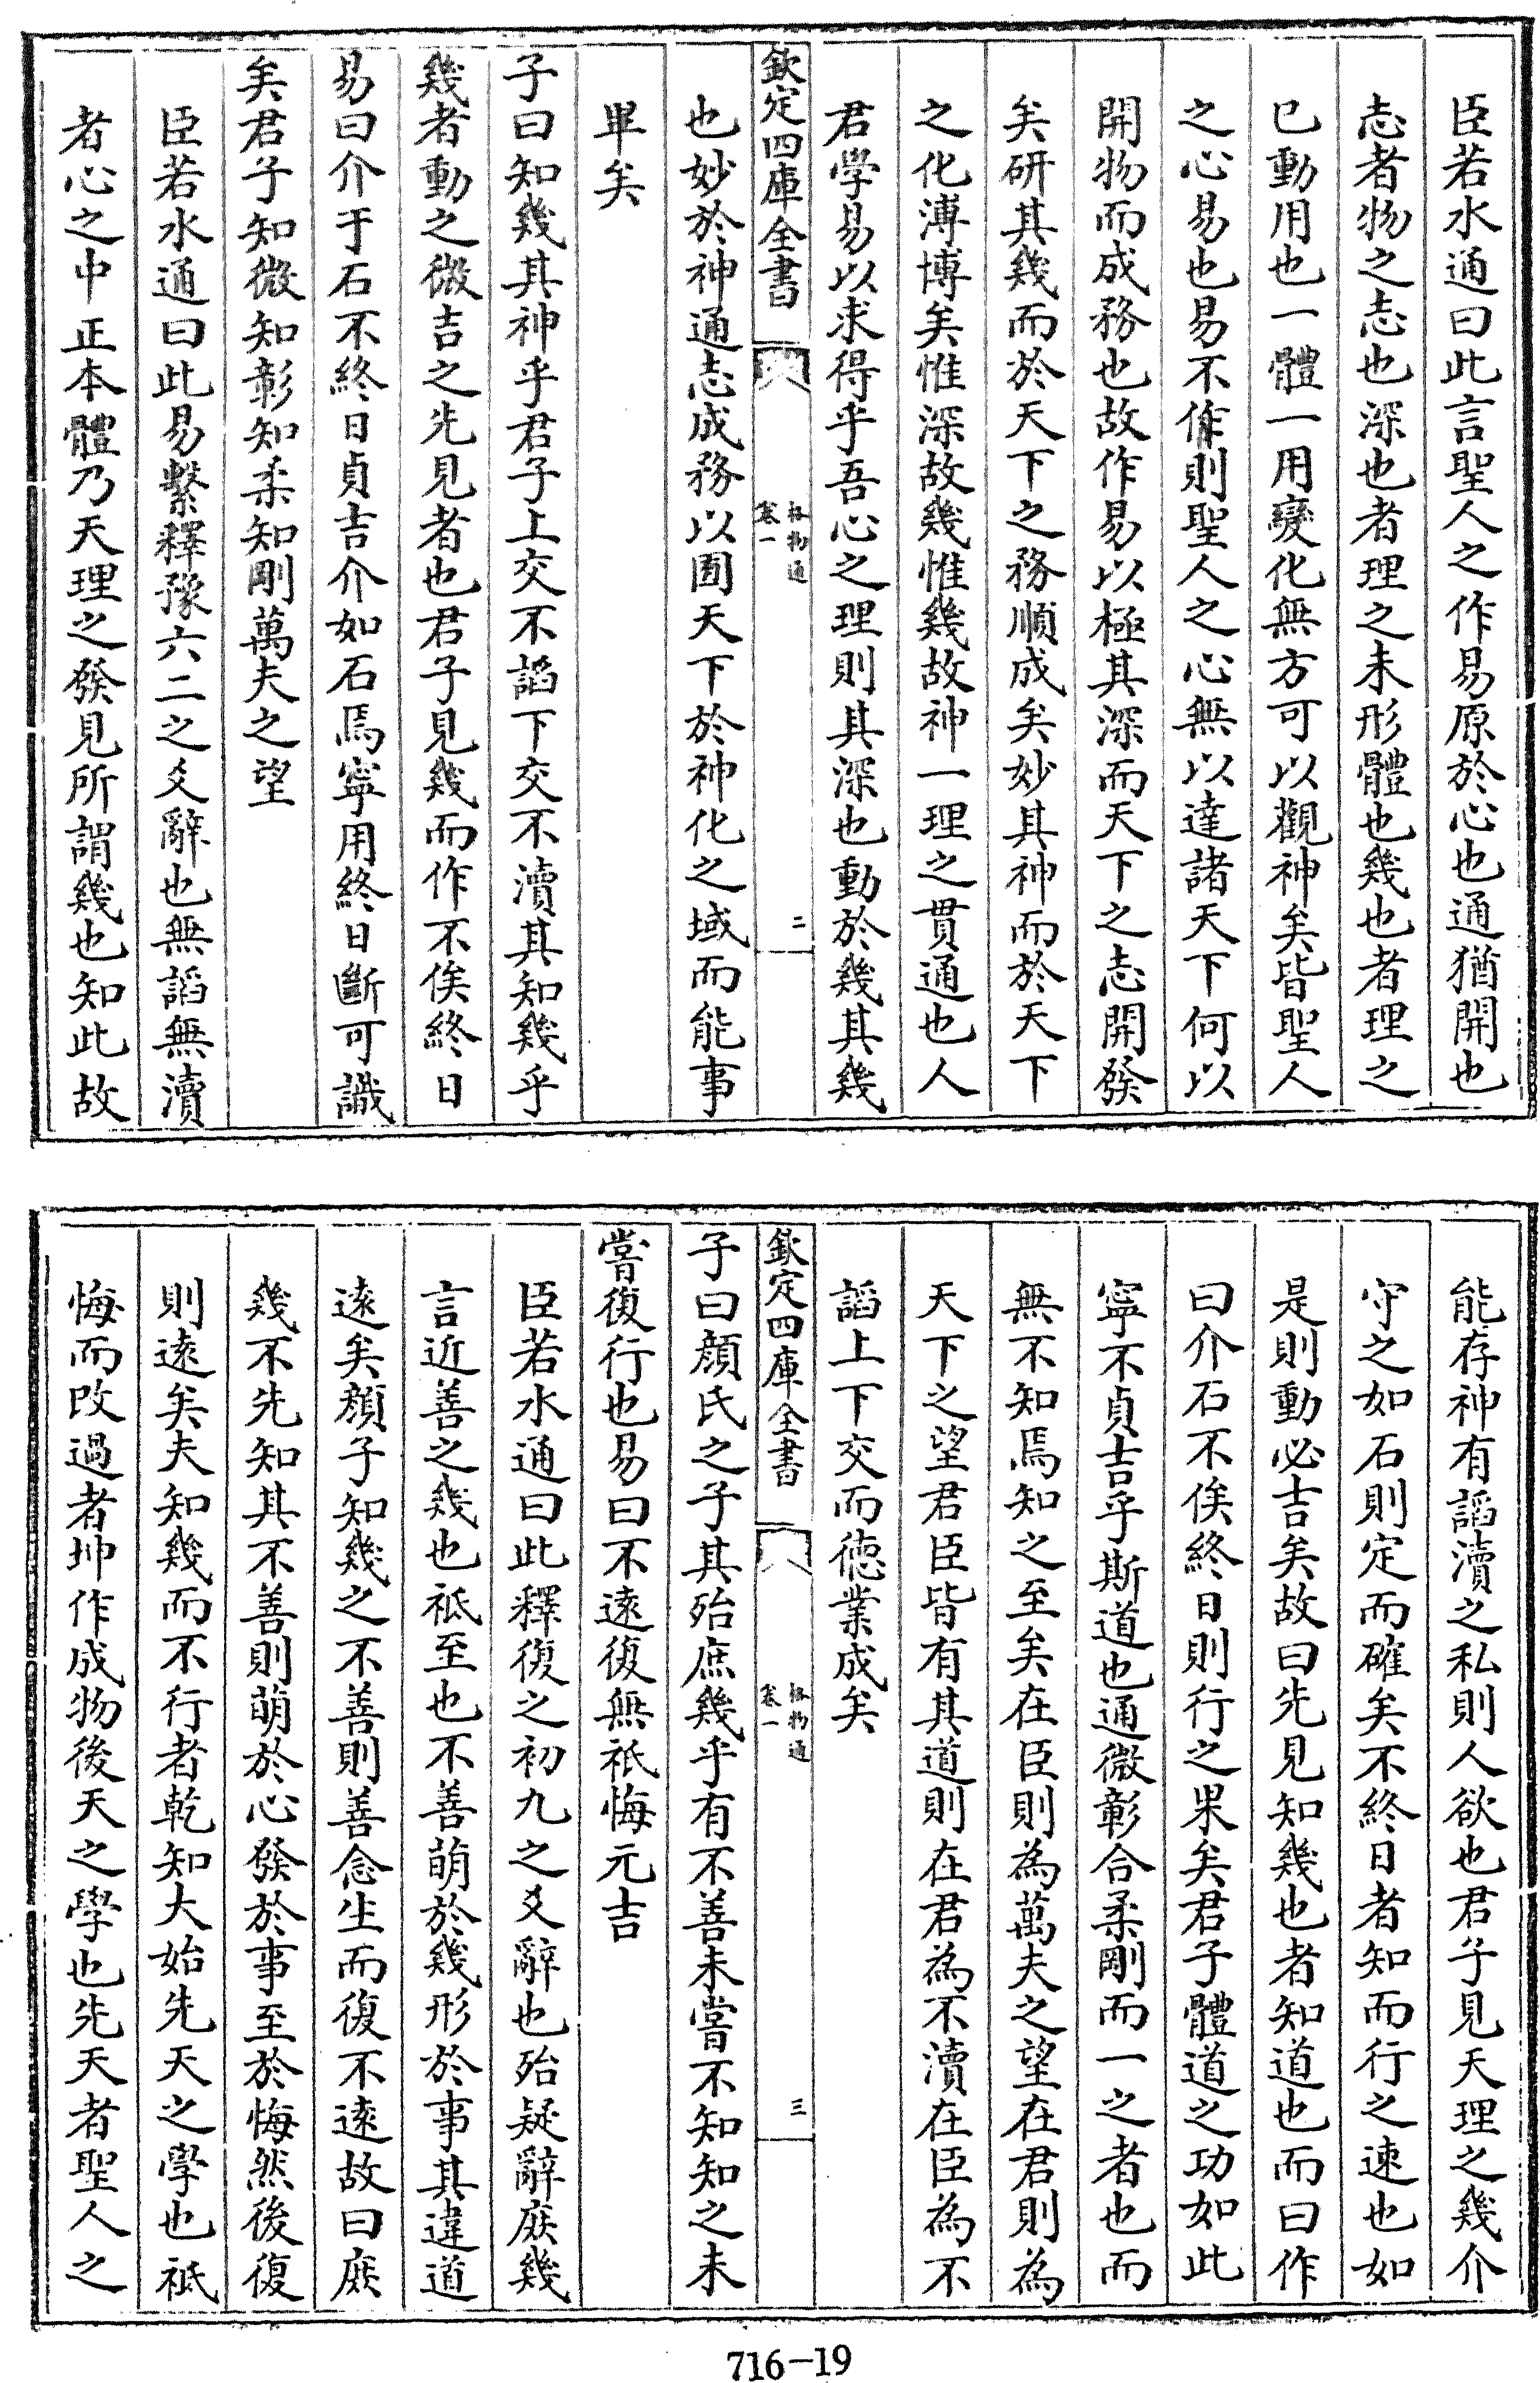 臣若水通曰此言聖人之作易原於心也通猶開也
志者物之志也深也者理之未形體也幾也者理之
已動用也一體一用變化無方可以觀神矣皆聖人
之心易也易不作則聖人之心無以達諸天下何以
開物而成務也故作易以極其深而天下之志開發
矣研其幾而於天下之務順成矣妙其神而於天下
之化溥博矣惟深故幾惟幾故神一理之貫通也人
君學易以求得乎吾心之理則其深也動於幾其幾
欽定四庫全書
格物通
卷一
二
也妙於神通志成務以囿天下於神化之域而能事
畢矣
子曰知幾其神乎君子上交不諂下交不瀆其知幾乎
幾者動之微吉之先見者也君子見幾而作不俟終日
易曰介于石不終日貞吉介如石焉寧用終日斷可識
矣君子知微知彰知柔知剛萬夫之望
臣若水通曰此易繫釋豫六二之爻辭也無諂無瀆
者心之中正本體乃天理之發見所謂幾也知此故
能存神有諂瀆之私則人欲也君子見天理之幾介
守之如石則定而確矣不終日者知而行之速也如
是則動必吉矣故曰先見知幾也者知道也而曰作
曰介石不俟終日則行之果矣君子體道之功如此
寧不貞吉乎斯道也通微彰合柔剛而一之者也而
無不知焉知之至矣在臣則為萬夫之望在君則為
天下之望君臣皆有其道則在君為不瀆在臣為不
諂上下交而德業成矣
欽定四庫全書
格物通
卷一
三
子曰顏氏之子其殆庶幾乎有不善未嘗不知知之未
嘗復行也易曰不遠復無祇悔元吉
臣若水通曰此釋復之初九之爻辭也殆疑辭庶幾
言近善之幾也祇至也不善萌於幾形於事其違道
遠矣顏子知幾之不善則善念生而復不遠故曰庶
幾不先知其不善則萌於心發於事至於悔然後復
則遠矣夫知幾而不行者乾知大始先天之學也祇
悔而改過者坤作成物後天之學也先天者聖人之
716-19